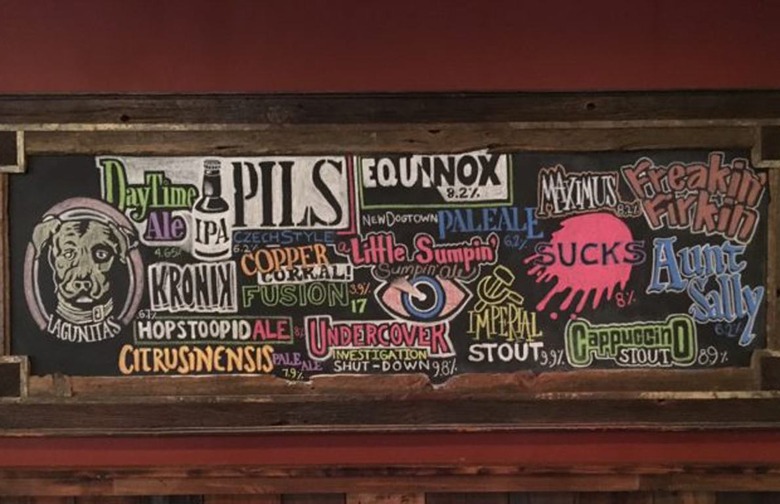 LAGUNITAS
DayTime
Ale
4.65%
IPA
PILS
CZECH STYLE
6.2%
COPPER
CORRAL!
KRONIK
FUSION
17
3.9%
HOPSTOOPID ALE
8%
CITRUSINENSIS
PALE
ALE
7.9%
EQUINOX
8.2%
NEW DOGTOWN
PALE ALE
6.2%
a Little Sumpin'
Sumpin' ale
UNDERCOVER
INVESTIGATION
SHUT-DOWN 9.8%
IMPERIAL
STOUT 9.9%
MAXIMUS
8.2%
Freakin'
Firkin
SUCKS
8%
Aunt
Sally
6.2%
Cappuccino
STOUT
8.9%